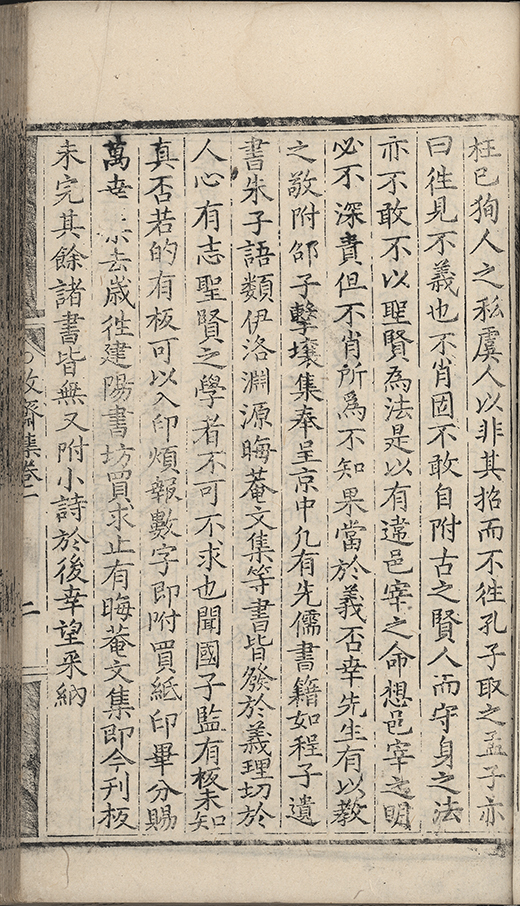 枉已狥人之私虞人以非其招而不徃孔子取之孟子亦
曰徃見不義也不肖固不敢自附古之賢人而守身之法
亦不敢不以聖賢為法是以有違邑宰之命想邑宰之明
必不深責但不肖所爲不知果當於義否幸先生有以教
之敬附邵子擊壤集奉呈京中凢有先儒書籍如程子遺
書朱子語類伊洛淵源晦菴文集等書皆發於義理切於
人心有志聖賢之學者不可不求也聞國子監有板未知
真否若的有板可以入印煩報數字即附買紙印畢分賜
萬幸 去歲徃建陽書坊買求止有晦菴文集即今刊板
未完其餘諸書皆無又附小詩於後幸望采納
齋集卷二
二